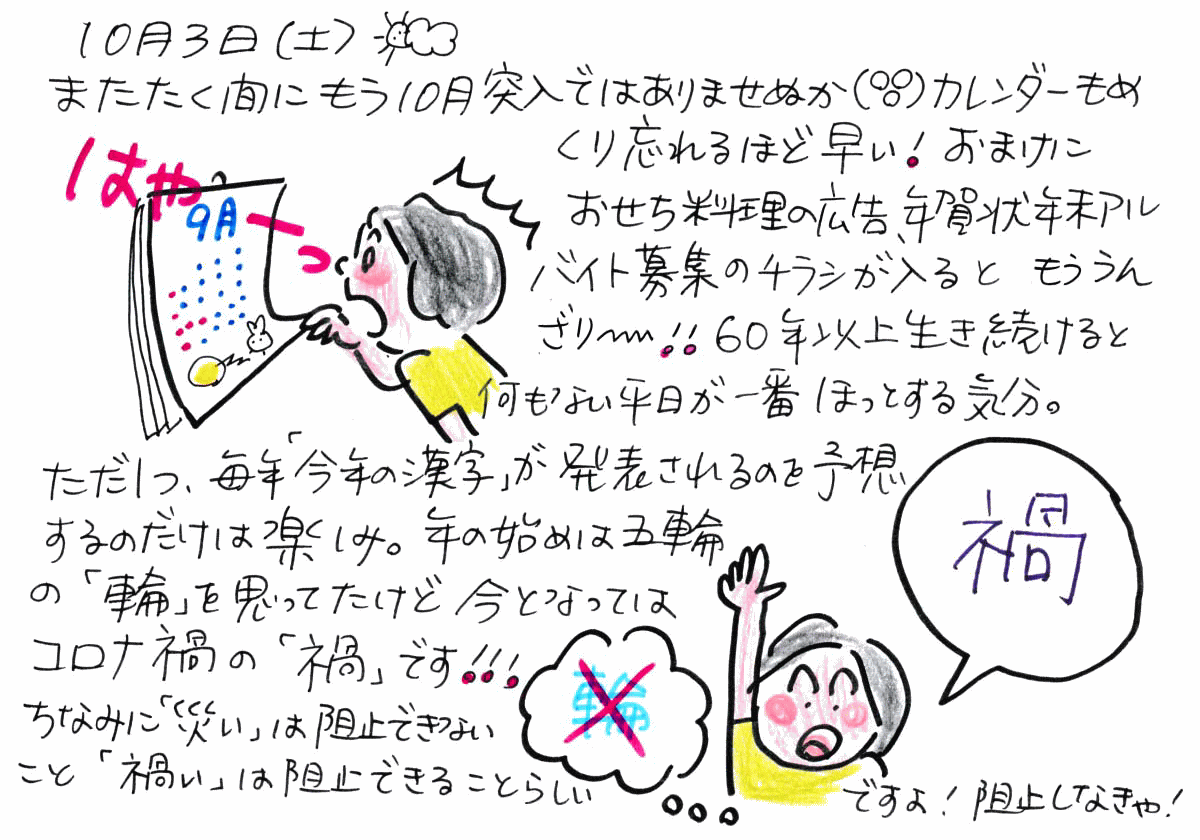 10月3日(土)
またたく間にもう10月突入ではありませぬか(°°)カレンダーもめ
くり忘れるほど早い!おまけに
はやーっ
9月
おせち料理の広告、年賀状年末アル
バイト募集のチラシが入ると もううん
ざり〜!!60年以上生き続けると
何もない平日が一番ほっとする気分。
ただ1つ、毎年「今年の漢字」が発表されるのを予想
するのだけは楽しみ。年の始めは五輪
の「輪」を思ってたけど 今となっては
コロナ禍の「禍」です!!!
ちなみに「災い」は阻止できない
こと「禍い」は阻止できることらしい
ですよ!阻止しなきゃ!
輪
禍